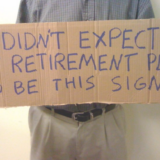 DIDN'T EXPECT
RETIREMENT
BE THIS SIGN